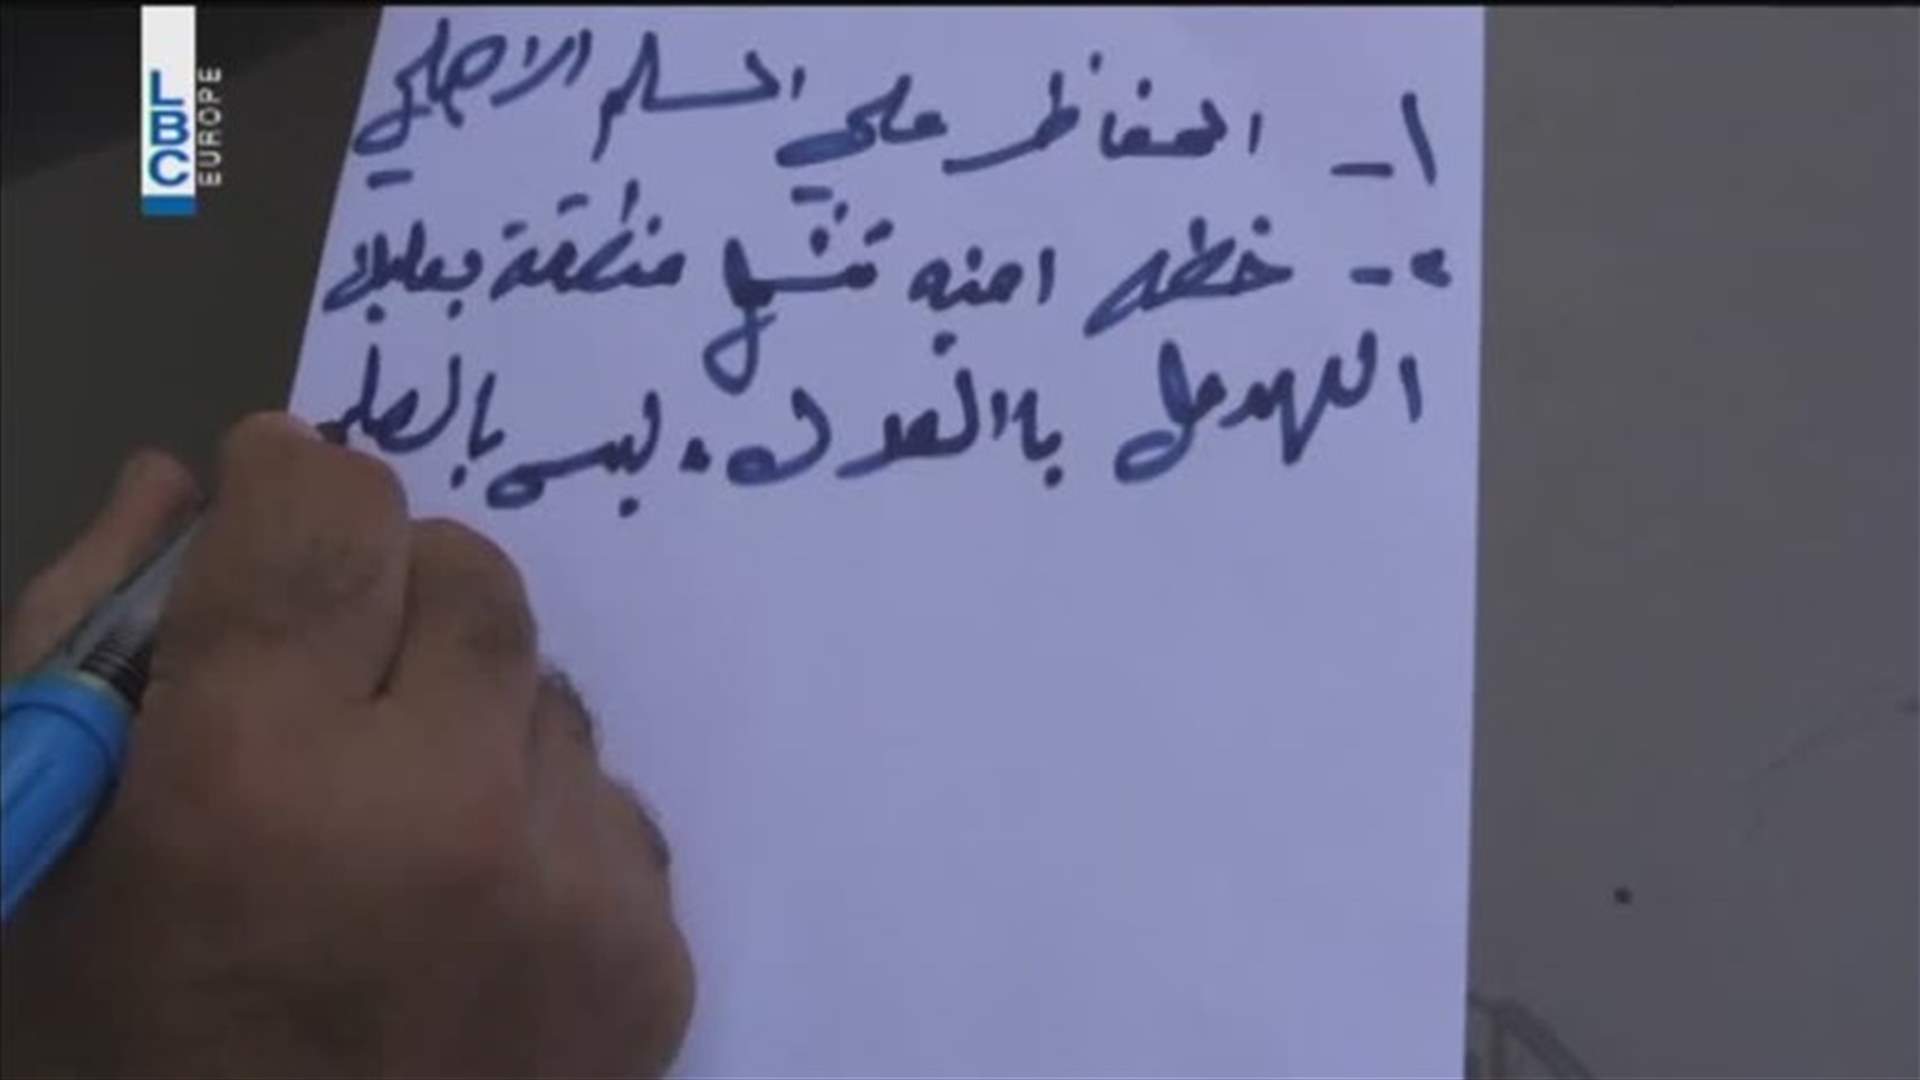 LBC
EUROPE
١- الحفاظ علي السلم الاهلي
٢- خطه امنيه تشمل منطقة بعلبك
الهرمل باالعدل. ليس بالعلم